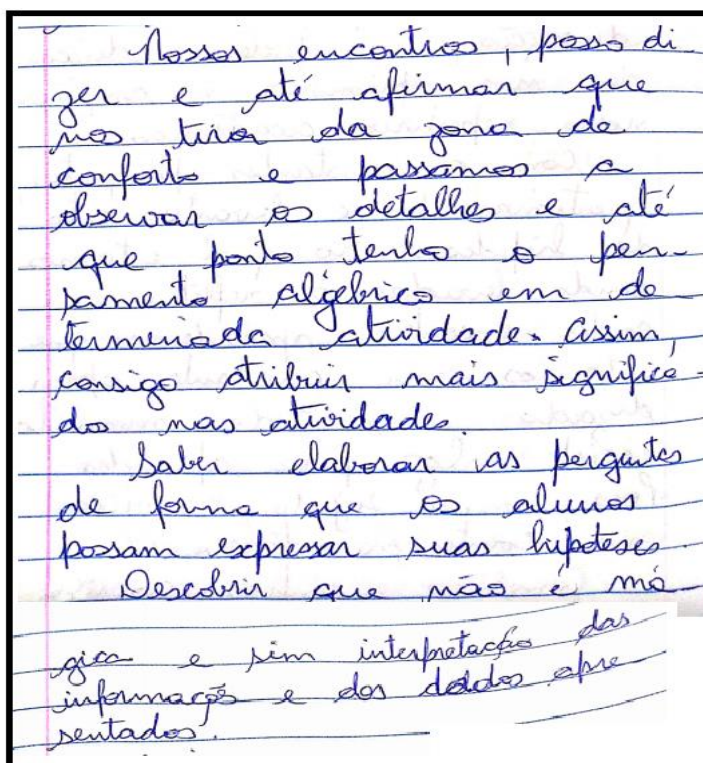 Nossos encontros, posso di
zer e até afirmar que
nos tira da zona de
conforto e passamos a
observar os detalhes e até
que ponto tenho o pen-
samento algébrico em de
termeniada atividade. Assim,
consigo atribuir mais significa-
do nas atividades.
Saber elaborar as perguntas
de forma que os alunos
possam expressar suas hipoteses.
Descobrir que não é má-
gica e sim interpretação das
informaçõs e dos dados apre
sentados.